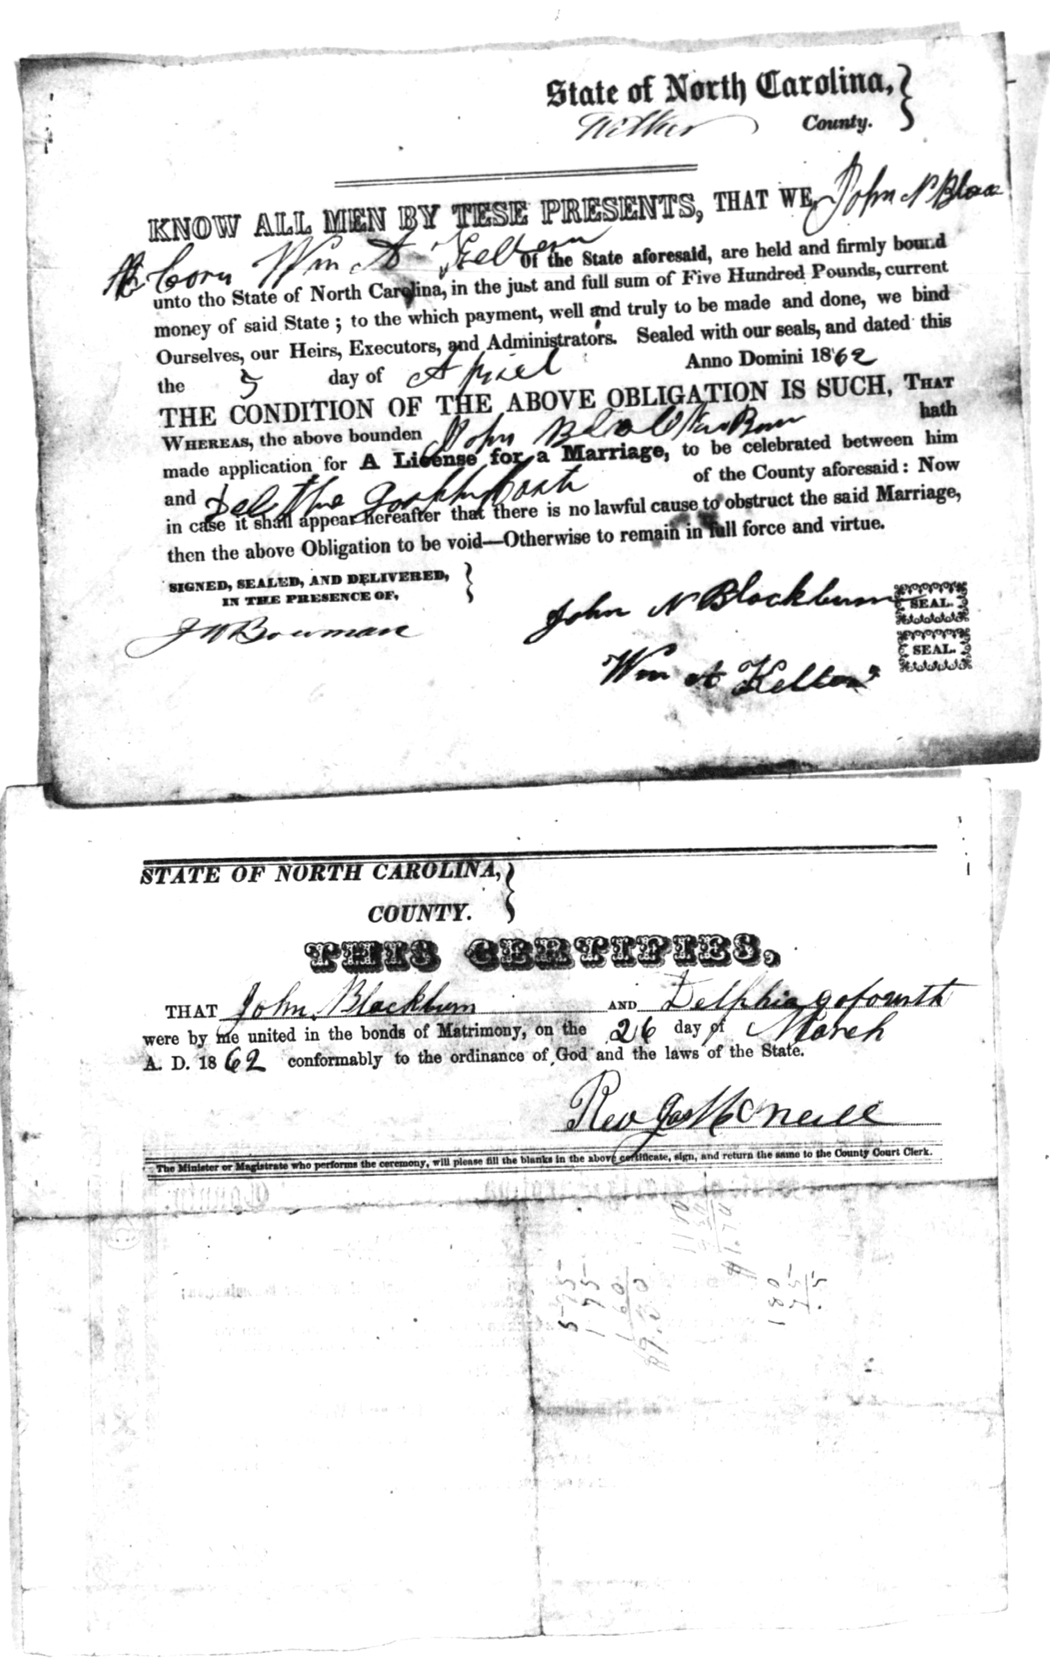 State of North Carolina,
Wilkes County.
KNOW ALL MEN BY TESE PRESENTS, THAT WE, John N Blac
Wm A Keltons Of the State aforesaid, are held and firmly bound
unto tho State of North Carolina, in the just and full sum of Five Hundred Pounds, current
money of said State ; to the which payment, well and truly to be made and done, we bind
Ourselves, our Heirs, Executors, and Administrators. Sealed with our seals, and dated this
the 5 day of Apriel Anno Domini 1862
THE CONDITION OF THE ABOVE OBLIGATION IS SUCH, THAT
WHEREAS, the above bounden John hath
made application for A License for a Marriage, to be celebrated between him
and of the County aforesaid : Now
in case it shall appear hereafter that there is no lawful cause to obstruct the said Marriage,
then the above Obligation to be void—Otherwise to remain in full force and virtue.
SIGNED, SEALED, AND DELIVERED,
IN THE PRESENCE OF,
J W Bowman
John N Blackburn SEAL.
Wm A Keltons SEAL.
STATE OF NORTH CAROLINA,
COUNTY.
THIS CERTIFIES,
THAT John Blackburn AND Delphia goforth
were by me united in the bonds of Matrimony, on the 26 day of March
A. D. 1862 conformably to the ordinance of God and the laws of the State.
Rev Jas McNeill
The Minister or Magistrate who performs the ceremony, will please fill the blanks in the above certificate, sign, and return the same to the County Court Clerk.
5 75
1 75
1 60